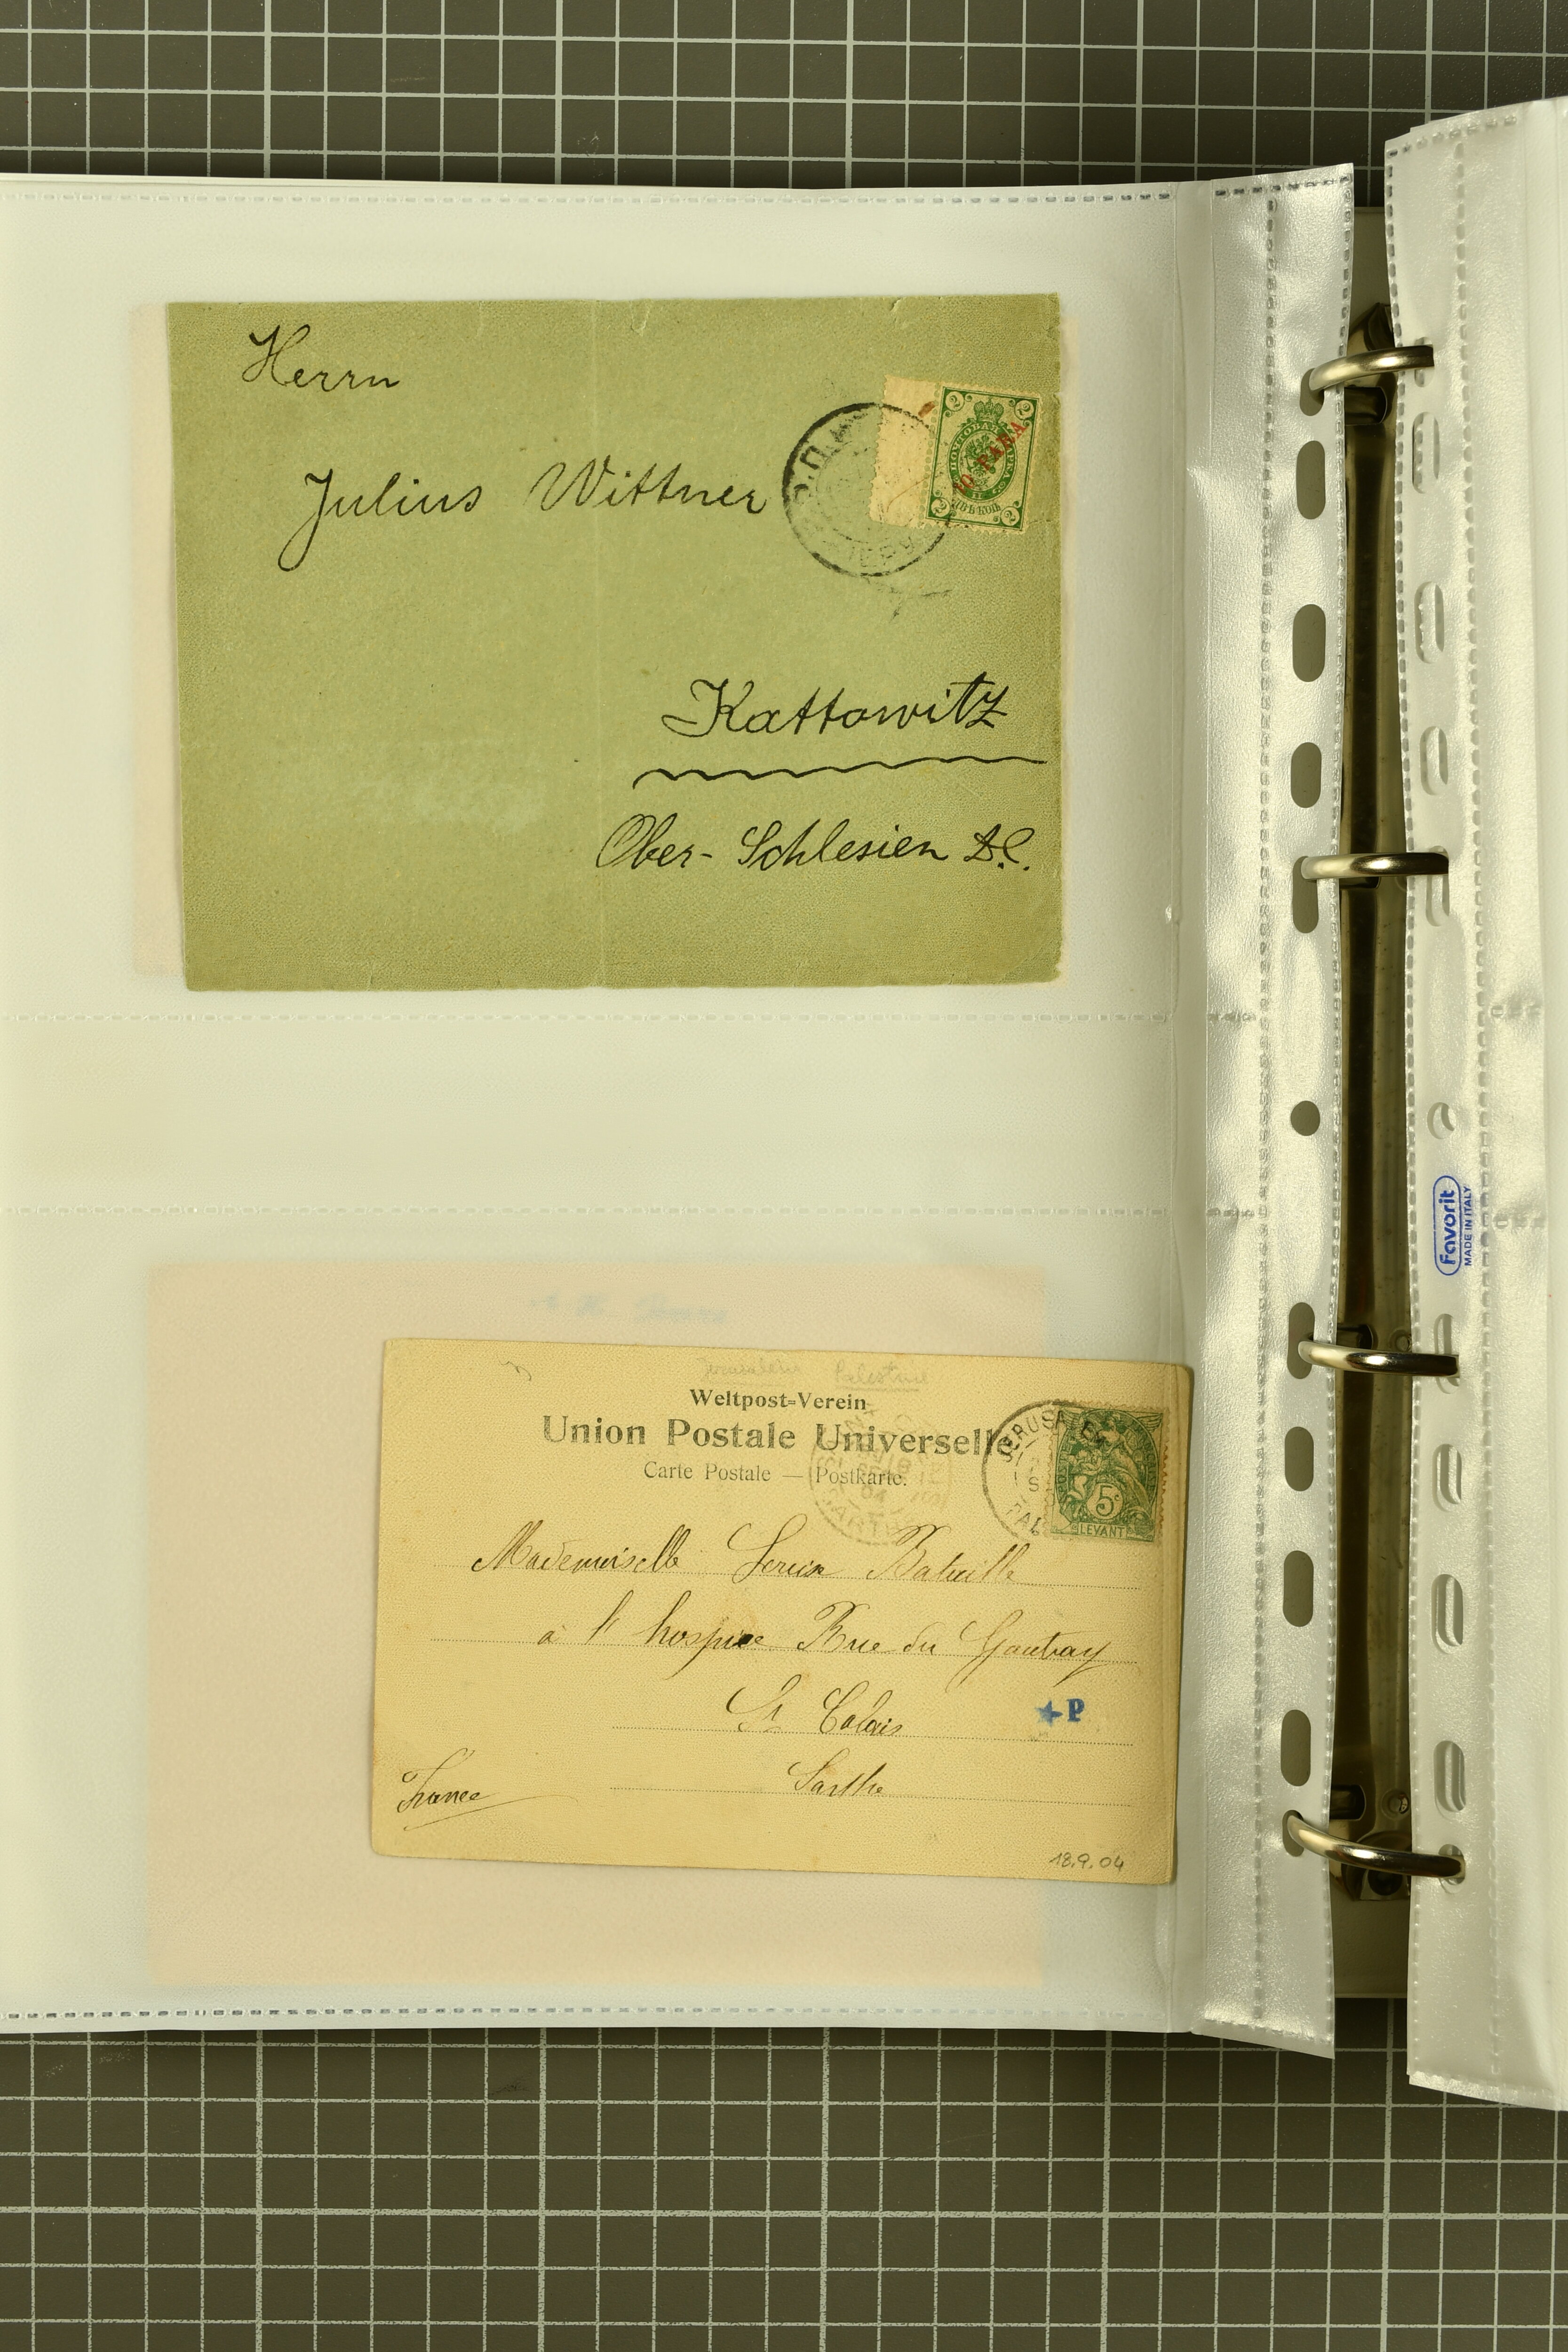 Herrn
Julius Wittner
Kattowitz
Ober-Schlesien
2 2
10 PARA
2 2
Jerusalem Palestine
Weltpost=Verein
Union Postale Universelle
Carte Postale — Postkarte.
JERUSALEM
5c
LEVANT
Mademoiselle Bataille
à l'hospice Rue du
St Calais
P
Sarthe
France
18.9.04
Favorit
MADE IN ITALY